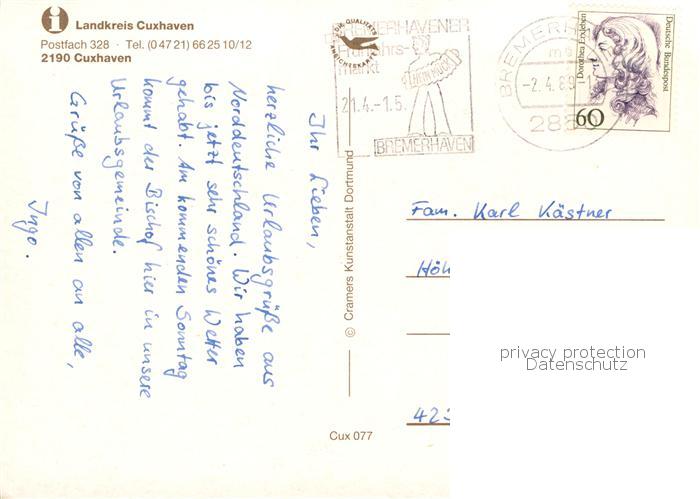 Landkreis Cuxhaven
Postfach 328 · Tel. (0 47 21) 66 25 10/12
2190 Cuxhaven
Ihr Lieben,
herzliche Urlaubsgrüße aus
Norddeutschland. Wir haben
bis jetzt sehr schönes Wetter
gehabt. Am kommenden Sonntag
kommt der Bischof hier in unsere
Urlaubsgemeinde.
Grüße von allen an alle,
Ingo.
© Cramers Kunstanstalt Dortmund
Cux 077
DIE QUALITÄTS
ANSICHTSKARTE
BREMERHAVENER
Frühjahrs-
markt
21.4.-1.5.
BREMERHAVEN
BREMERH
-2.4.89
285
Dorothea Erxleben
Deutsche Bundespost
60
Fam. Karl Kästner
Höh
42
privacy protection
Datenschutz